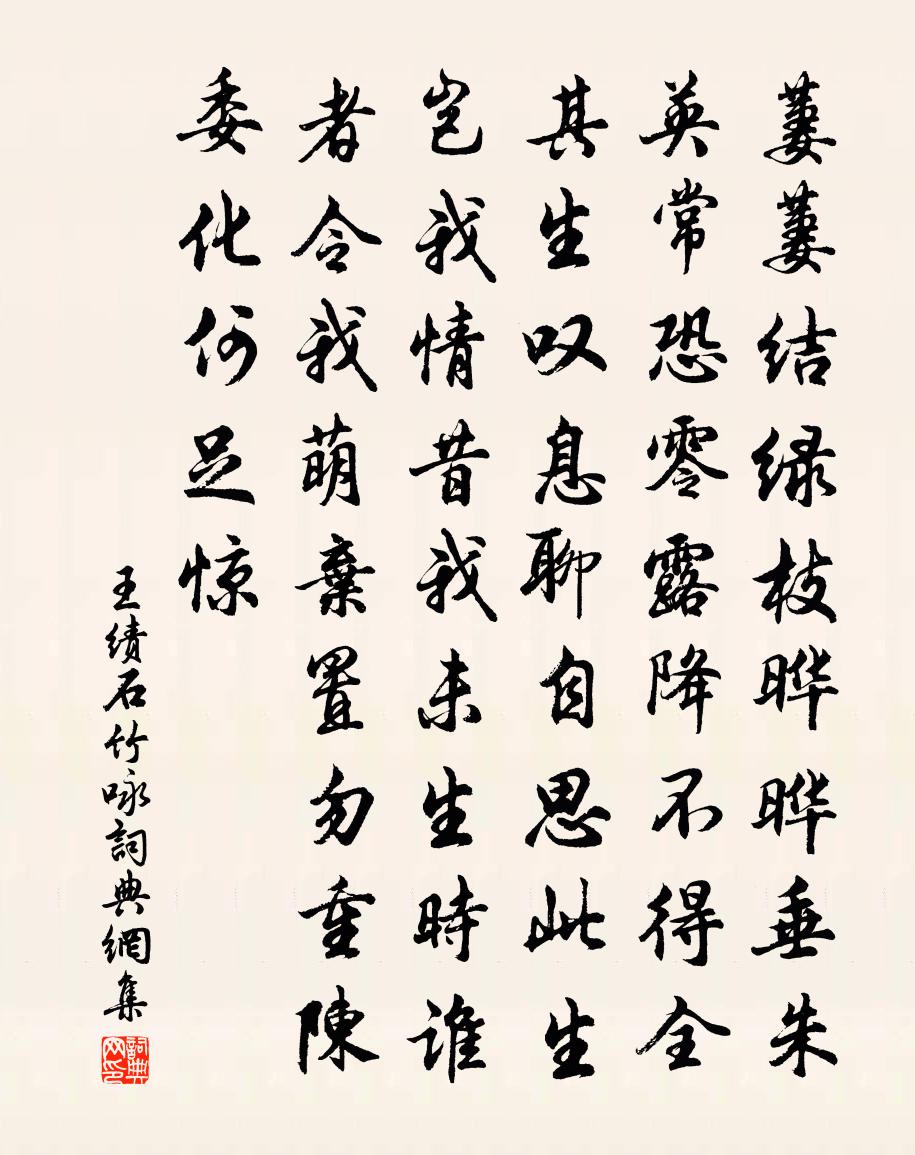 萋萋结绿枝晔晔垂朱
英常恐零露降不得全
其生叹息聊自思此生
岂我情昔我未生時谁
者令我萌棄置勿重陳
委化何足惊
王绩石竹咏詞典網集
詞典网印